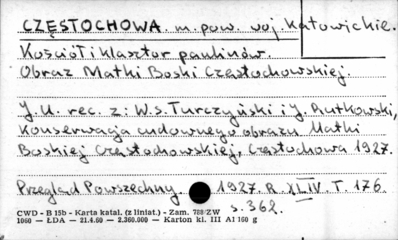 CZĘSTOCHOWA m. pow. woj. Katowickie.
Kościół i klasztor paulinów.
Obraz Matki Boski Częstochowskiej.
J.U. rec. z: W.S. Turczyński i J. Rutkowski,
Konserwacja cudownego obrazu Matki
Boskiej Częstochowskiej, Częstochowa 1927.
Przegląd Powszechny 1927. R. XLIV. T. 176
s. 362.
CWD - B 15b - Karta katal. (z liniat.) - Zam. 788/ZW
1060 — ŁDA — 21.4.60 — 2.360.000 — Karton kl. III A1 160 g